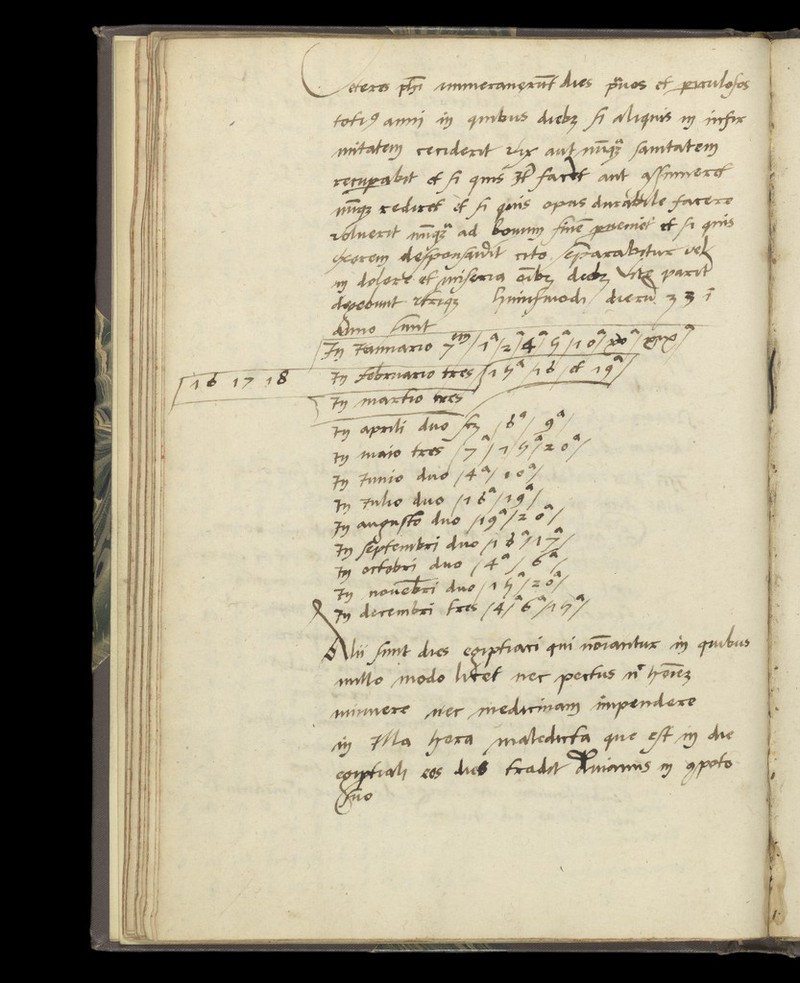 Ceteros phi innuenerunt dies puos et periculosos
toti9 anni in quibus diebz si aliquis in infir
mitatem ceciderit vix aut nūqz sanitatem
recupabit et si quis Itr faceret aut assumeret
nūqz rediret et si quis opus durabile facere
voluerit nūqz ad bonum finē pveniet et si quis
uxorem desponsaverit cito separabitur vel
in dolore et miseria oībz diebz vite parit
degebunt utriqz huiusmodi dierū 33 ī
anno sunt
In Januario 7em / 1a / 2a / 4a / 5a / 10a / xva / xixa
In februario tres / 15a / 16 / et 19a /
16 17 18
In martio tres
In aprili duo scz / 6a / 9a
In maio tres / 7a / 15a / 20a /
In Junio duo / 4a / 10a /
In Julio duo / 16a / 19a /
In augusto duo / 19a / 20a /
In septembri duo / 16a / 17a /
In octobri duo / 4a / 6a /
In novēbri duo / 15a / 20a /
In decembri tres / 4a / 6a / 15a /
Alii sunt dies egiptiaci qui noīantur in quibus
nullo modo licet nec pectus nec hoīez
minuere nec medicinam impendere
in Illa hora maledicta que est in die
egiptiali eos dies tradit in 9poto
suo